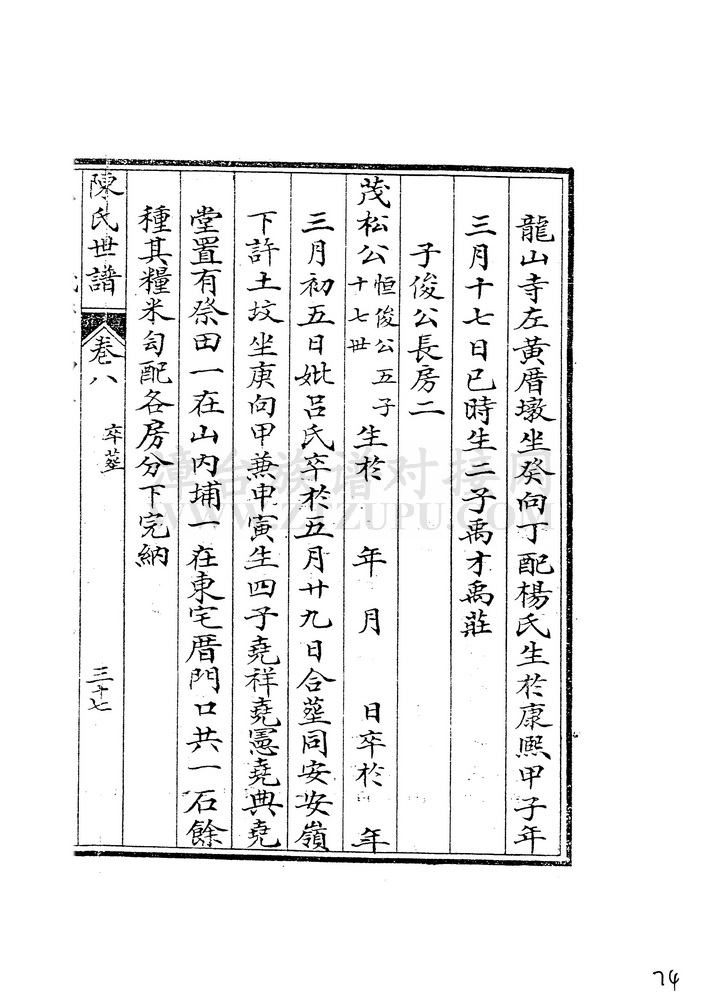 龍山寺左黃厝墩坐癸向丁配楊氏生於康熙甲子年
三月十七日巳時生二子禹才禹莊
子俊公長房二
茂松公恒俊公五子十七世 生於 年 月 日卒於 年
三月初五日妣呂氏卒於五月廿九日合塟同安安嶺
下許土坟坐庚向甲兼申寅生四子堯祥堯憲堯典堯
堂置有祭田一在山內埔一在東宅厝門口共一石餘
種其糧米勻配各房分下完納
陳氏世譜 卷八 卒塟 三十七
漳台族谱对接网
WWW.ZTZUPU.COM
74